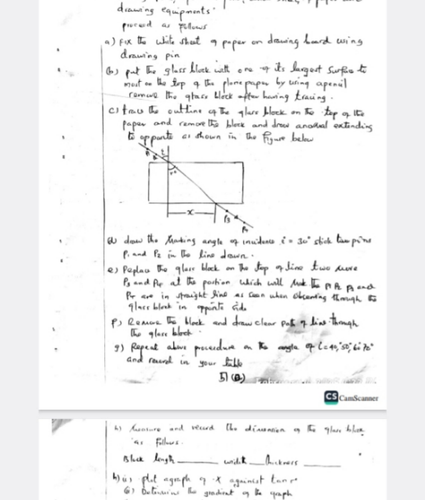 drawing equipments.
proceed as follows
a) Fix the white sheet of paper on drawing board using
drawing pin
(b) put the glass block with one of its largest surface to
most on the top of the plane paper by using a pencil
remove the glass block after having tracing.
c) trace the outline of the glass block on the top of the
paper and remove the block and draw a normal extending
to opposite as shown in the figure below
x
P3
P4
(d) draw the making angle of incidence i = 30° stick two pins
P1 and P2 in the line drawn.
e) Replace the glass block on the top of line two more
P3 and P4 at the position which will
P4 are in straight line as seen when observing through the
glass block in opposite side
F) Remove the block and draw clear path of line through
the glass block.
g) Repeat above procedure on the angle of i = 40°, 50°, 60, 70°
and record in your table
CS CamScanner
h) measure and record the dimension of the glass block
as follows.
Block length width thickness
plot a graph of x against
Determine the gradient of the graph